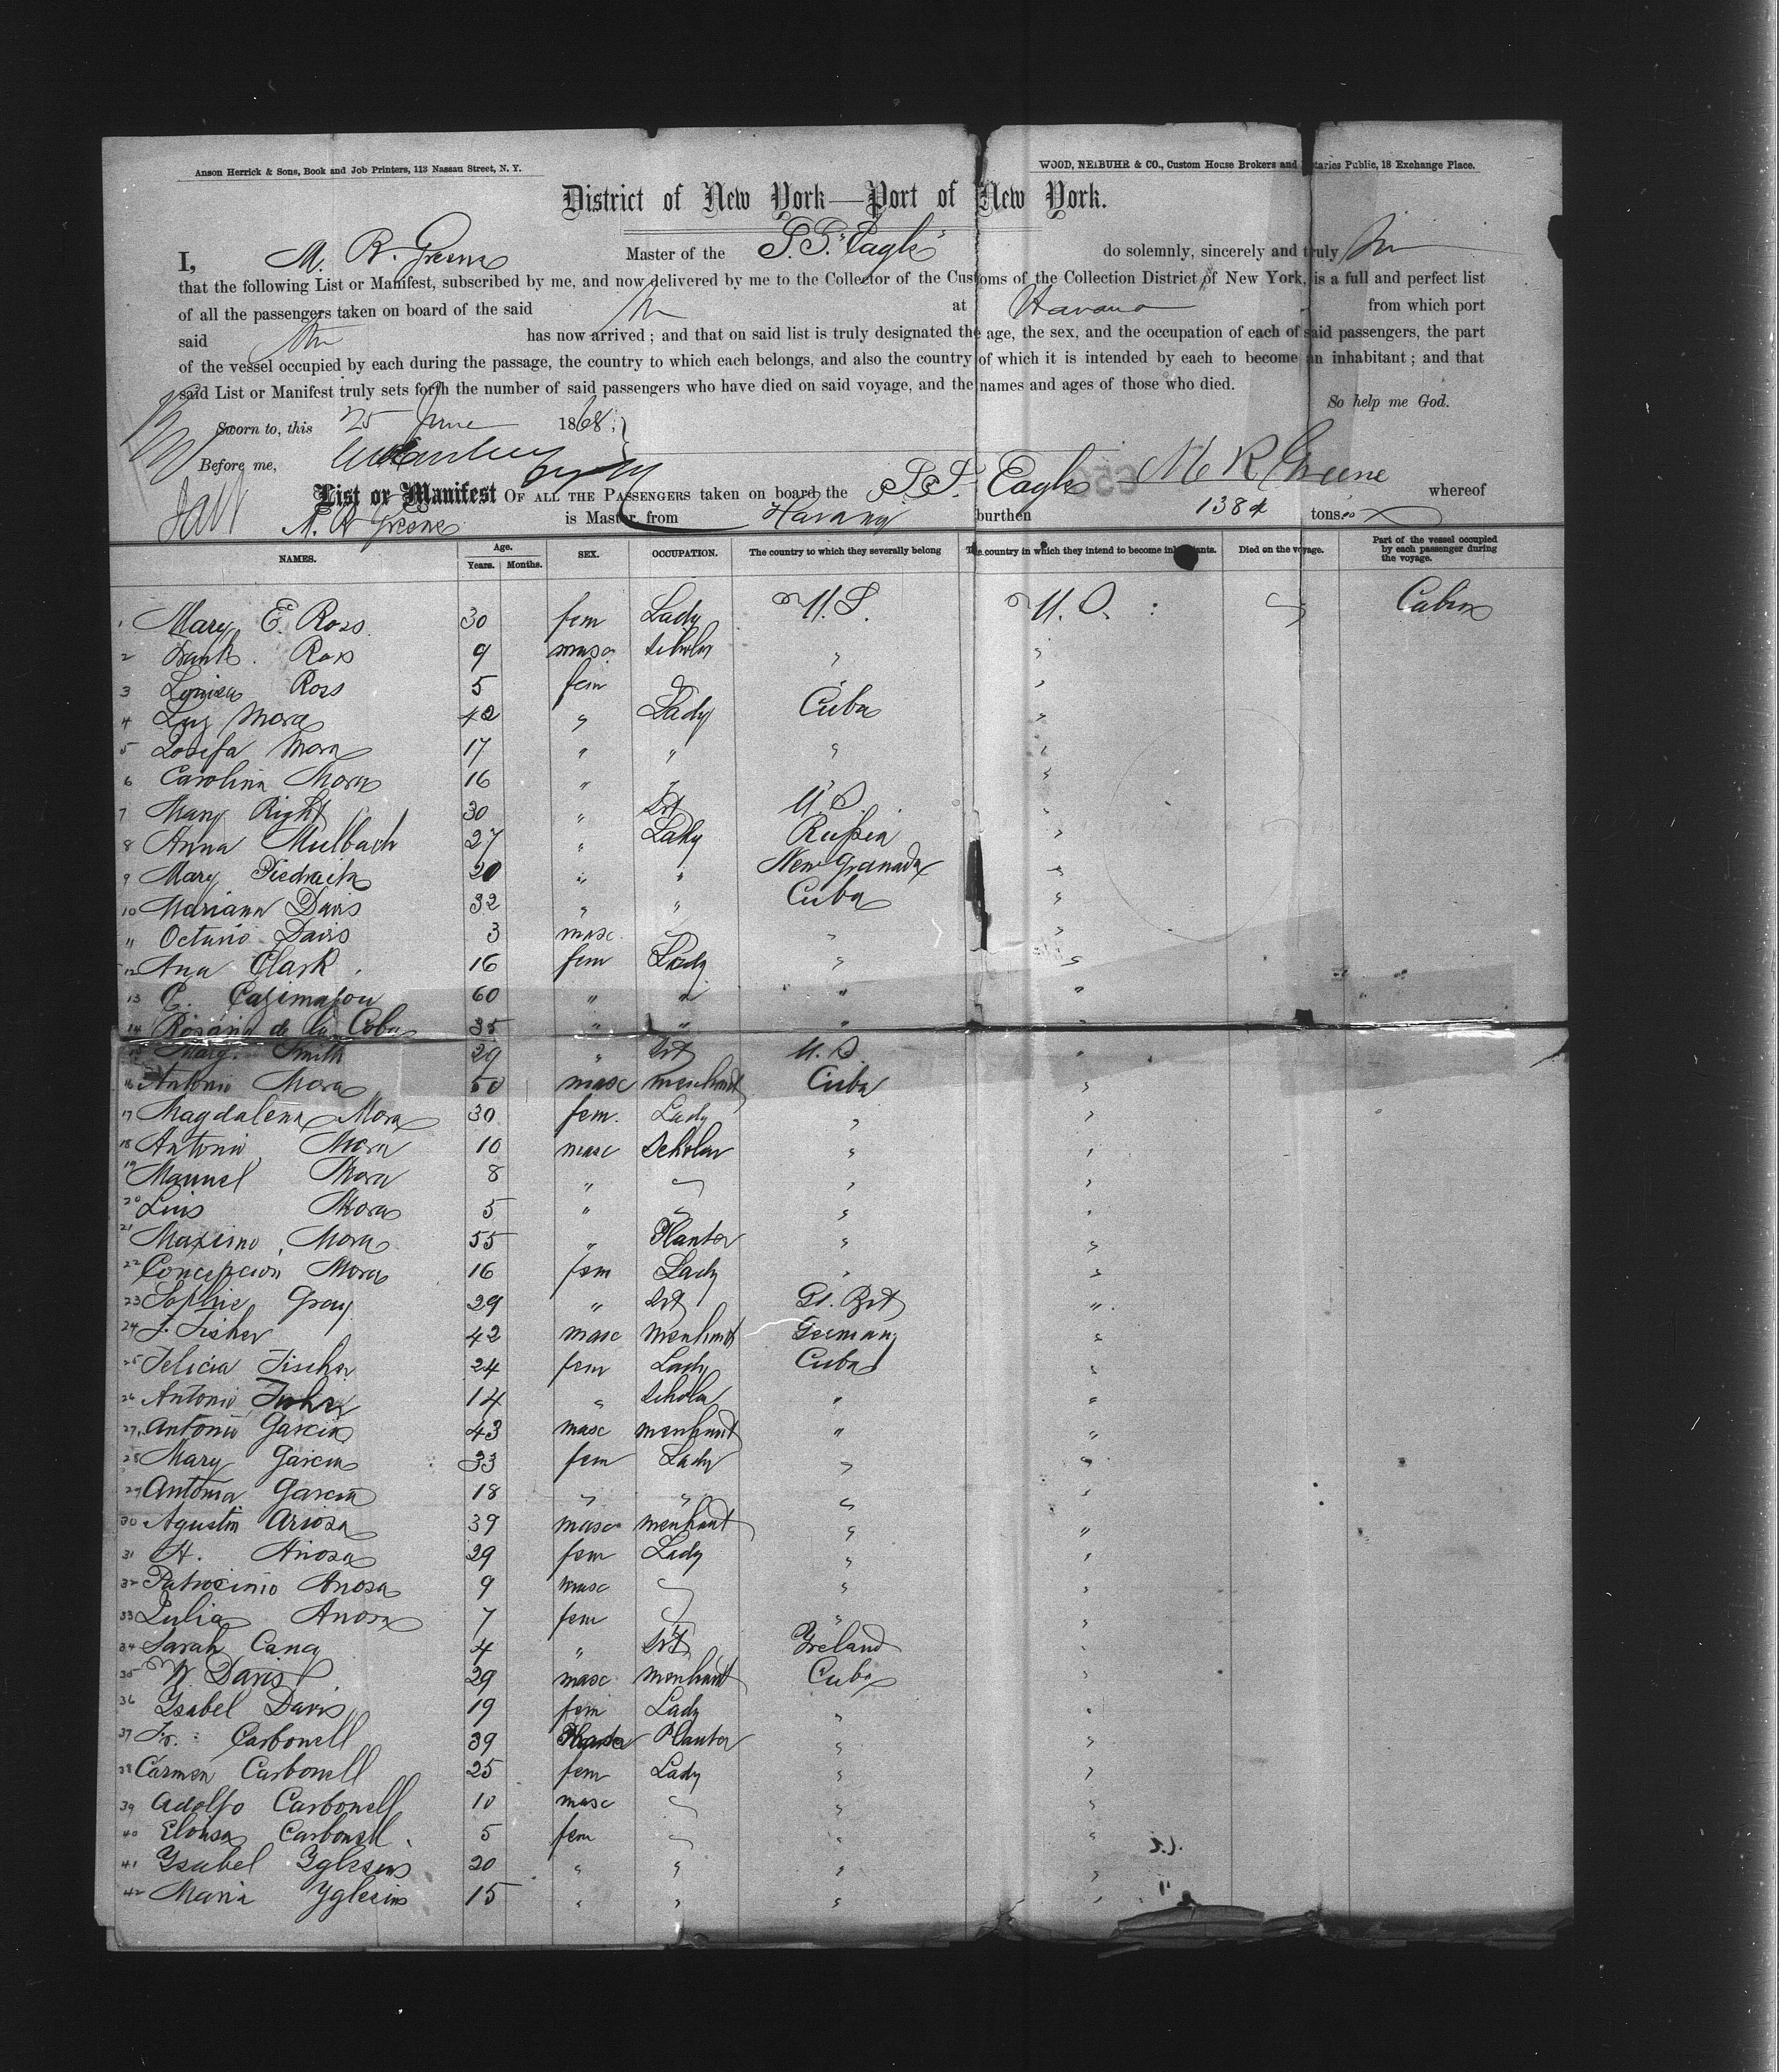 Anson Herrick & Sons, Book and Job Printers, 113 Nassau Street, N. Y.
WOOD, NEIBUHR & CO., Custom House Brokers and Notaries Public, 18 Exchange Place.
District of New York—Port of New York.
I, M. R. Greene Master of the S.S. "Eagle" do solemnly, sincerely and truly
that the following List or Manifest, subscribed by me, and now delivered by me to the Collector of the Customs of the Collection District of New York, is a full and perfect list
of all the passengers taken on board of the said at Havana from which port
said has now arrived; and that on said list is truly designated the age, the sex, and the occupation of each of said passengers, the part
of the vessel occupied by each during the passage, the country to which each belongs, and also the country of which it is intended by each to become an inhabitant; and that
said List or Manifest truly sets forth the number of said passengers who have died on said voyage, and the names and ages of those who died.
So help me God.
Sworn to, this 25 June 1868.
Before me, M R Greene
List or Manifest OF ALL THE PASSENGERS taken on board the S.S. Eagle whereof
M. R Greene is Master, from Havana burthen 1384 tons.
NAMES. Age. Years. Months. SEX. OCCUPATION. The country to which they severally belong The country in which they intend to become inhabitants. Died on the voyage. Part of the vessel occupied by each passenger during the voyage.
1 Mary E. Ross 30 fem Lady U.S. U.S. Cabin
2 Frank Ross 9 masc Scholar " "
3 Louisa Ross 5 fem " "
4 Luz Mora 42 " Lady Cuba "
5 Josefa Mora 17 " " " "
6 Carolina Mora 16 " " " "
7 Mary Right 30 " Svt U.S. "
8 Anna Mulbach 27 " Lady Russia "
9 Mary Piedraita 20 " " New Granada "
10 Mariana Davis 32 " " Cuba "
" Octavio Davis 3 masc " "
12 Ana Clark 16 fem Lady " "
13 C. 60 " " " "
14 Rosario de la Coba 35 " " " "
15 Mary Smith 29 " Svt U.S. "
16 Antonio Mora 50 masc merchant Cuba "
17 Magdalena Mora 30 fem. Lady " "
18 Antonio Mora 10 masc Scholar " "
19 Manuel Mora 8 " " "
20 Luis Mora 5 " " "
21 Maximo Mora 55 " Planter " "
22 Concepcion Mora 16 fem Lady " "
23 Sophie Gray 29 " Svt Gt. Brt "
24 J. Fisher 42 masc merchant Germany "
25 Felicia Fischer 24 fem Lady Cuba "
26 Antonio Fisher 14 " Scholar " "
27 Antonio Garcia 43 masc merchant " "
28 Mary Garcia 33 fem Lady " "
29 Antonia Garcia 18 " " " "
30 Agustin Ariosa 39 masc merchant " "
31 A. Ariosa 29 fem Lady " "
32 Patrocinio Ariosa 9 masc " "
33 Julia Ariosa 7 fem " "
34 Sarah 4 " Svt Yreland "
35 W. Davis 29 masc merchant Cuba "
36 Ysabel Davis 19 fem Lady " "
37 Fr. Carbonell 39 Planter " "
38 Carmen Carbonell 25 fem Lady " "
39 Adolfo Carbonell 10 masc " "
40 Eloisa Carbonell 5 fem " "
41 Ysabel Yglesias 20 " " " "
42 Maria Yglesias 15 " " " "